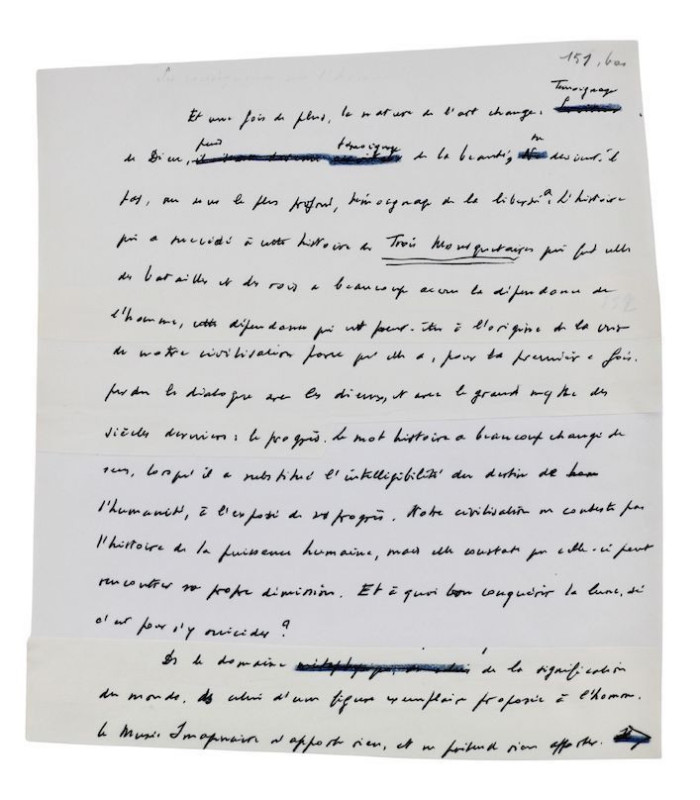 151, bis
Témoignage
Et une fois de plus, la nature de l'art change.
puis témoignage ne
de Dieu, de la beauté, devient-il
pas, au sens le plus profond, témoignage de la liberté? L'histoire
qui a succédé à cette histoire des Trois Mousquetaires qui fut celle
des batailles et des rois a beaucoup accru la dépendance de
l'homme, cette dépendance qui est peut-être à l'origine de la crise
de notre civilisation parce qu'elle a, pour la première fois,
perdu le dialogue avec les dieux, et avec le grand mythe des
siècles derniers : le progrès. Le mot histoire a beaucoup changé de
sens, lorsqu'il a substitué l'intelligibilité du destin de
l'humanité, à l'exposé de ses progrès. Notre civilisation ne conteste pas
l'histoire de la puissance humaine, mais elle constate que celle-ci peut
rencontrer sa propre dimission. Et à quoi bon conquérir la lune, si
c'est pour s'y suicider ?
Ds le domaine de la signification
du monde, ds celui d'une figure exemplaire proposée à l'homme.
le Musée Imaginaire n'apporte rien, et ne prétend rien apporter.